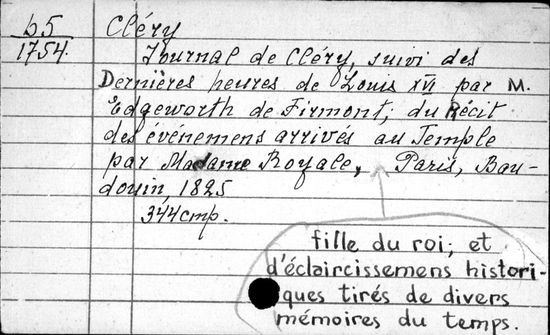 b5
1754.
Cléry
Journal de Cléry, suivi des
Dernières heures de Louis XVI par M.
Edgeworth de Firmont; du Récit
des événemens arrivés au Temple
par Madame Royale, Paris, Bau-
douin, 1825
344cmp.
fille du roi; et
d'éclaircissemens histori-
ques tirés de divers
mémoires du temps.